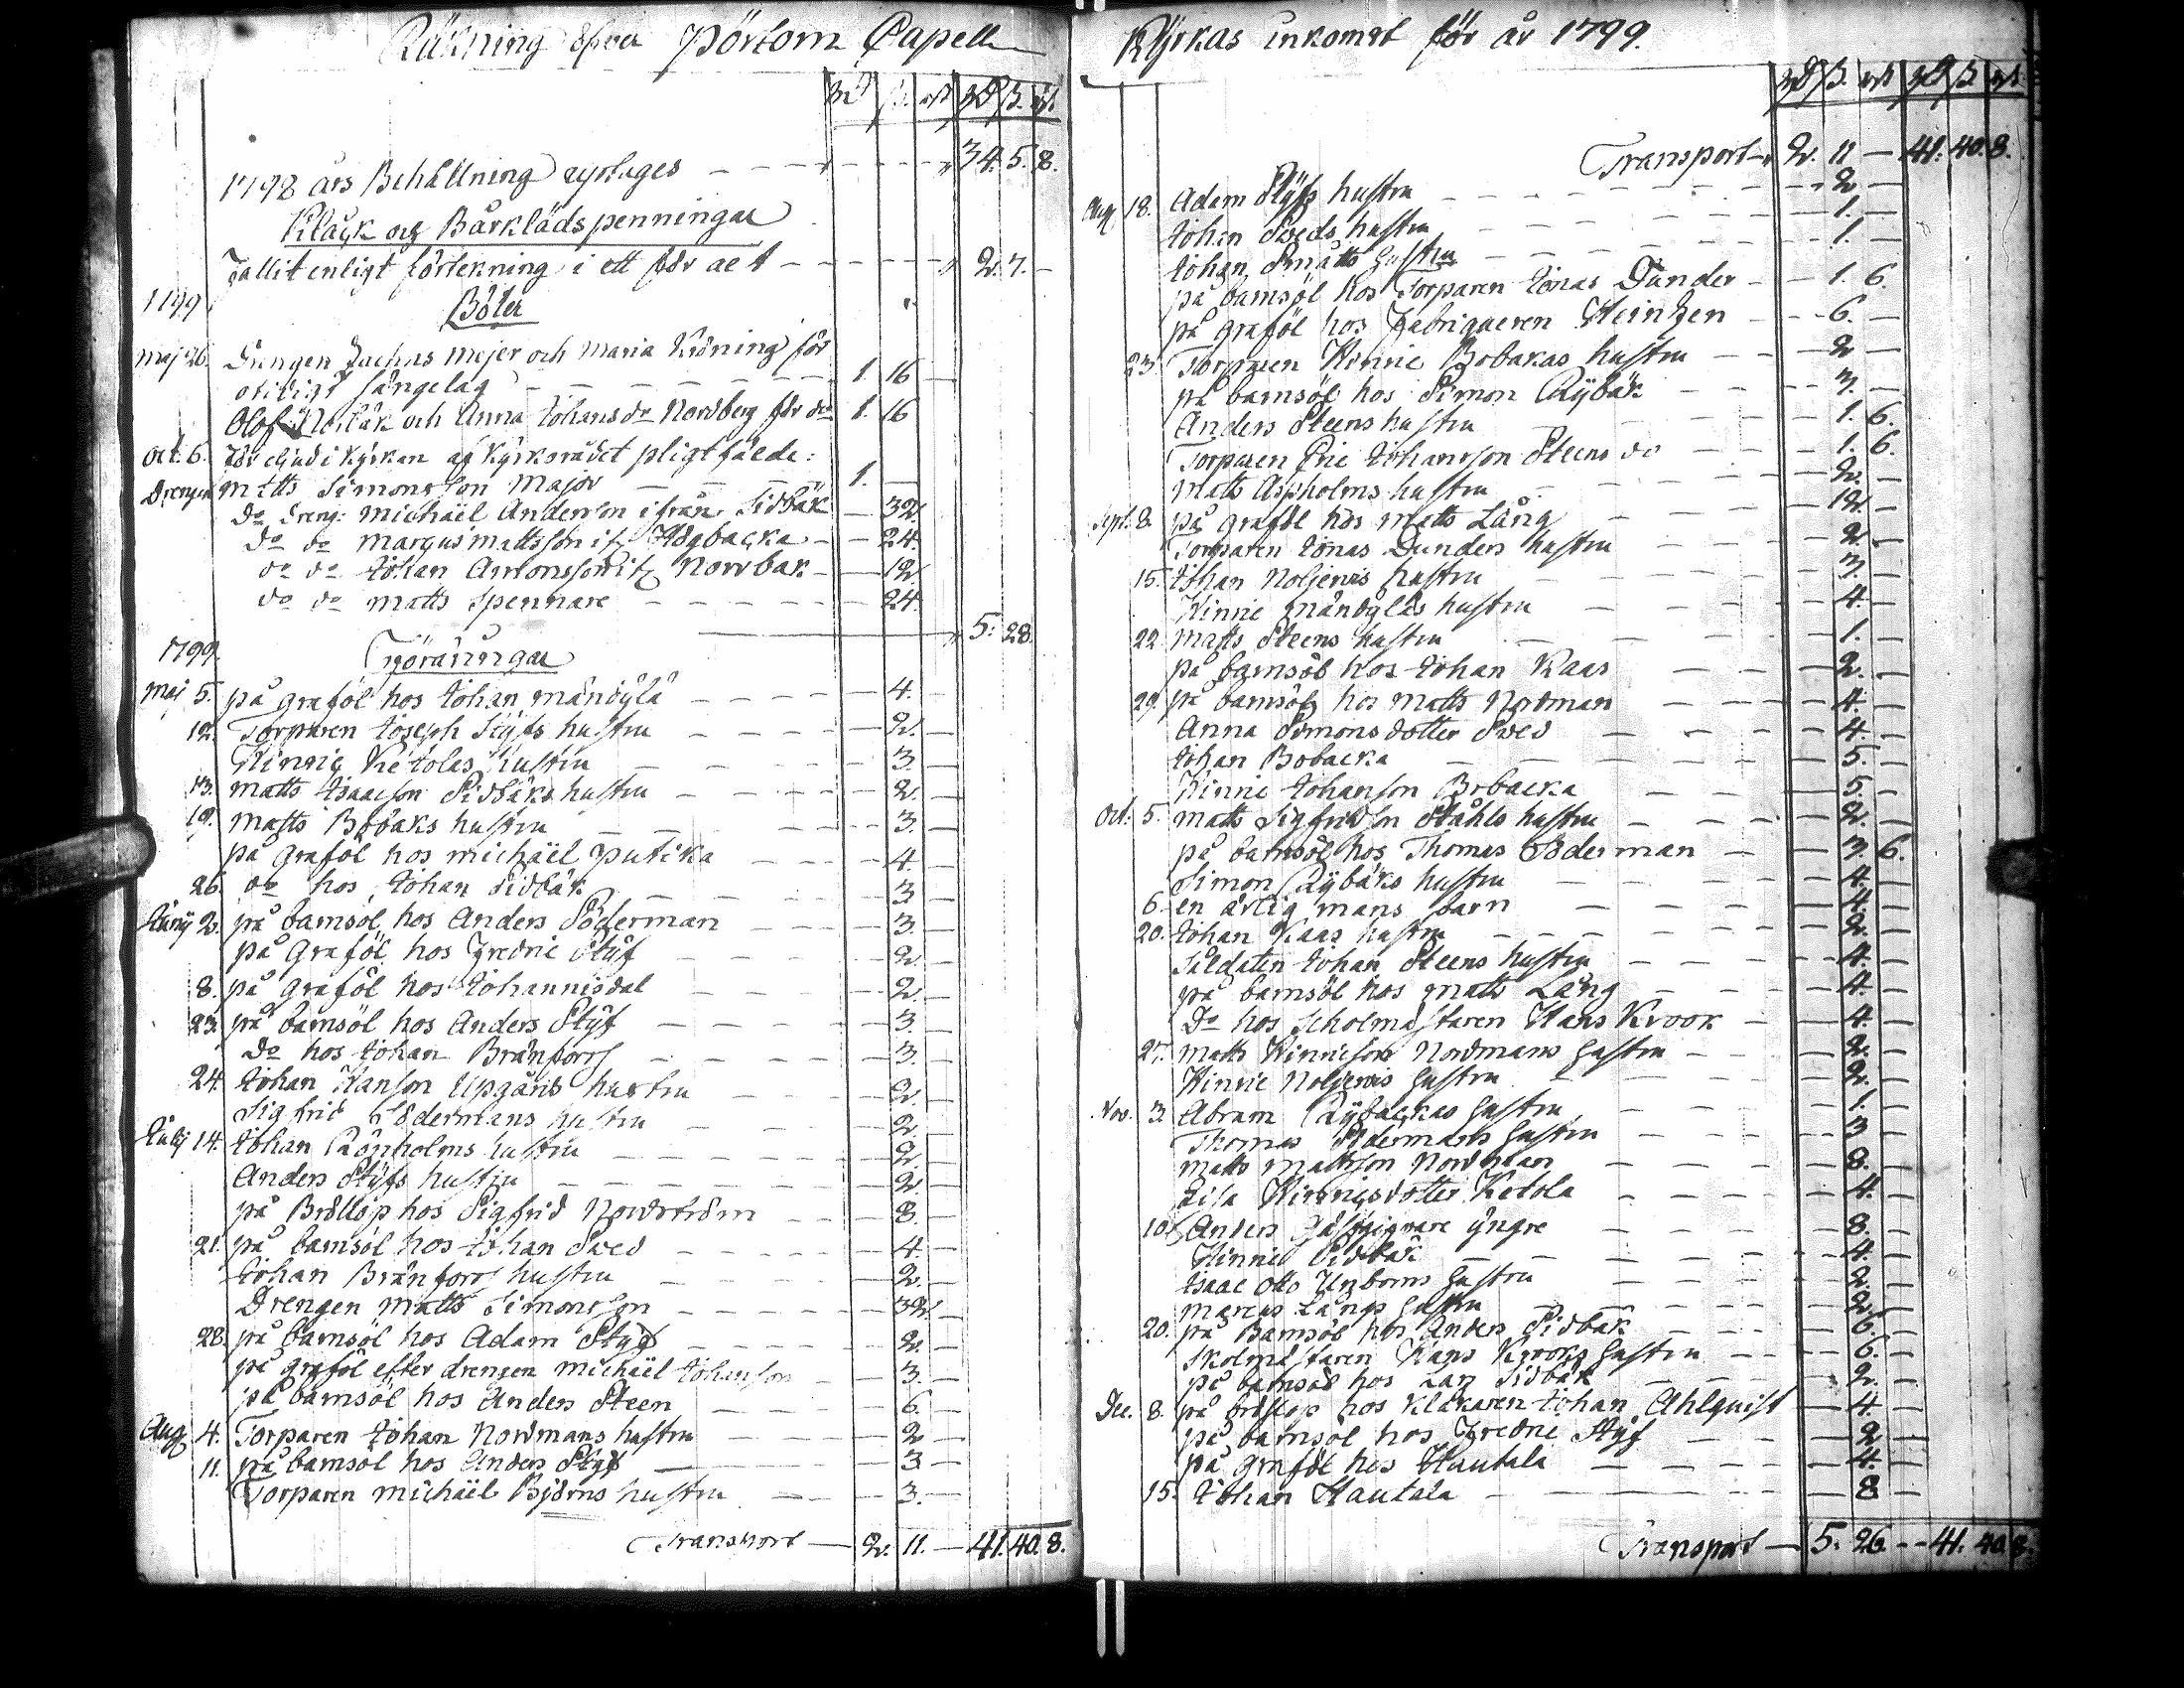 Räkning öfver Pörtom Capell
Rd ß. rst Rd ß. rst
1798 års Behållning uptages - - - 34. 5. 8.
Klåck og Bårklädspenningar
Fallit enligt förtekning i ett för alt - - - 2. 7. -
1799 Böter
Maj 26. Drengen Zachris Mejer och Maria Kröning för
otidigt sängelag - - - 1. 16 -
Olof Norbäk och Anna Johansdr Nordberg för do 1. 16
Oct. 6. För oljud i Kyrkan af Kyrkorådet pligtfälde:
Drengen Matts Simonsson Major - - - 1. -
do dreng: Michäel Andersson ifrån Sidbäk - 32.
do do Margus Mattsson if Högbacka - - 24.
do do Johan Antonsson if Norrbak - - 12.
do do Matts Spennare - - - 24.
5. 28.
1799. Föräningar
Maj 5. på graföl hos Johan Mändylä - - - 4. -
12. Torparen Joseph Styfs hustru - - - 2. -
Hinric Ketolas hustru - - - 3 -
13. Matts Isaacson Sidbäks hustru - - - 2. -
19. Matts Bobaks hustru - - - 3. -
på graföl hos Michäel Putika - - - 4. -
26. do hos Johan Sidbäk - - - 3 -
Junij 2. på barnsöl hos Anders Söderman - - - 3. -
på graföl hos Fredric Styf - - - 2. -
8. på graföl hos Johannisdal - - - 2. -
23. på barnsöl hos Anders Styf - - - 3. -
do hos Johan Bränforss - - - 3. -
24. Johan Hanson Upgårds hustru - - - 2. -
Sigfrid Södermans hustru - - - 2. -
Julij 14. Johan Rönholms hustru - - - 2 -
Anders Styfs hustru - - - 2. -
på Bröllop hos Sigfrid Nordström - - - 8. -
21. på barnsöl hos Johan Sved - - - 4. -
Johan Bränforss hustru - - - 2. -
Drengen Matts Simonsson - - - 32. -
28. på barnsöl hos Adam Styf - - - 2. -
på graföl efter drengen Michäel Johanson - 3. -
på barnsöl hos Anders Steen - - - 6. -
Aug. 4. Torparen Johan Nordmans hustru - - - 2 -
11. på barnsöl hos Anders Styf - - - 3 -
Torparen Michäel Björns hustru - - - 3. -
Transport - 2. 11. - 41. 40. 8.
Kyrkas inkomst för år 1799.
Rd ß. rst Rd ß. rst
Transport - 2. 11 - 41. 40. 8.
Aug. 18. Adam Styfs hustru - - - 2 -
Johan Sveds hustru - - - 1. -
Johan Smått hustru - - - 1. -
på barnsöl hos Torparen Jonas Dunder - - 1. 6.
på graföl hos Fabriqueren Heintzen - - - 6. -
23. Torparen Hinric Bobakas hustru - - - 2 -
på barnsöl hos Simon Rybäk - - - 3. -
Anders Steens hustru - - - 1. 6.
Torparen Eric Johansson Steens do - - - 1. 6.
Matts Aspholms hustru - - - 2. -
Sept. 8. på graföl hos Matts Lång - - - 12. -
Torparen Jonas Dunders hustru - - - 2. -
15. Johan Noljeris hustru - - - 3. -
Hinric Mändyläs hustru - - - 4. -
22. Matts Steens hustru - - - 1. -
på barnsöl hos Johan Kaas - - - 2. -
29. på barnsöl hos Matts Nordman - - - 4. -
Anna Simonsdotter Sved - - - 4. -
Johan Bobacka - - - 5. -
Hinric Johanson Bobacka - - - 5. -
Oct. 5. Matts Sigfridson Ståhls hustru - - - 2. -
på barnsöl hos Thomas Söderman - - 3. 6.
Simon Rybäks hustru - - - 4. -
6. en ärlig mans barn - - - 4. -
20. Johan Kaas hustru - - - 2. -
Soldaten Johan Steens hustru - - - 4. -
på barnsöl hos Matts Lång - - - 4. -
Do hos Scholmästaren Hans Krook - 4. -
27. Matts Hinricson Nordmans hustru - - 2. -
Hinric Noljeris hustru - - - 2. -
Nov. 3. Abram Rybackas hustru - - - 1. -
Thomas Södermans hustru - - - 3 -
Matts Mattsson Nordman - - - 8. -
Lisa Hinricsdotter Ketola - - - 4. -
10. Anders Gästgifvare yngre - - - 8. -
Hinric Sidbäk - - - 4. -
Isaac Otto Unborns hustru - - - 2. -
Marcus Långs hustru - - - 2. -
20. på Barnsöl hos Anders Sidbäk - - - 6. -
Skolmästaren Hans Krooks hustru - - - 6. -
på barnsöl hos Lars Sidbäk - - - 2. -
Dec. 8. på bröllop hos Klåkaren Johan Ahlquist - 4. -
på barnsöl hos Fredric Styf - - - 2 -
på graföl hos Hautala - - - 4. -
15. Johan Hautala - - - 8 -
Transport - 5. 26. - - 41. 40. 8.